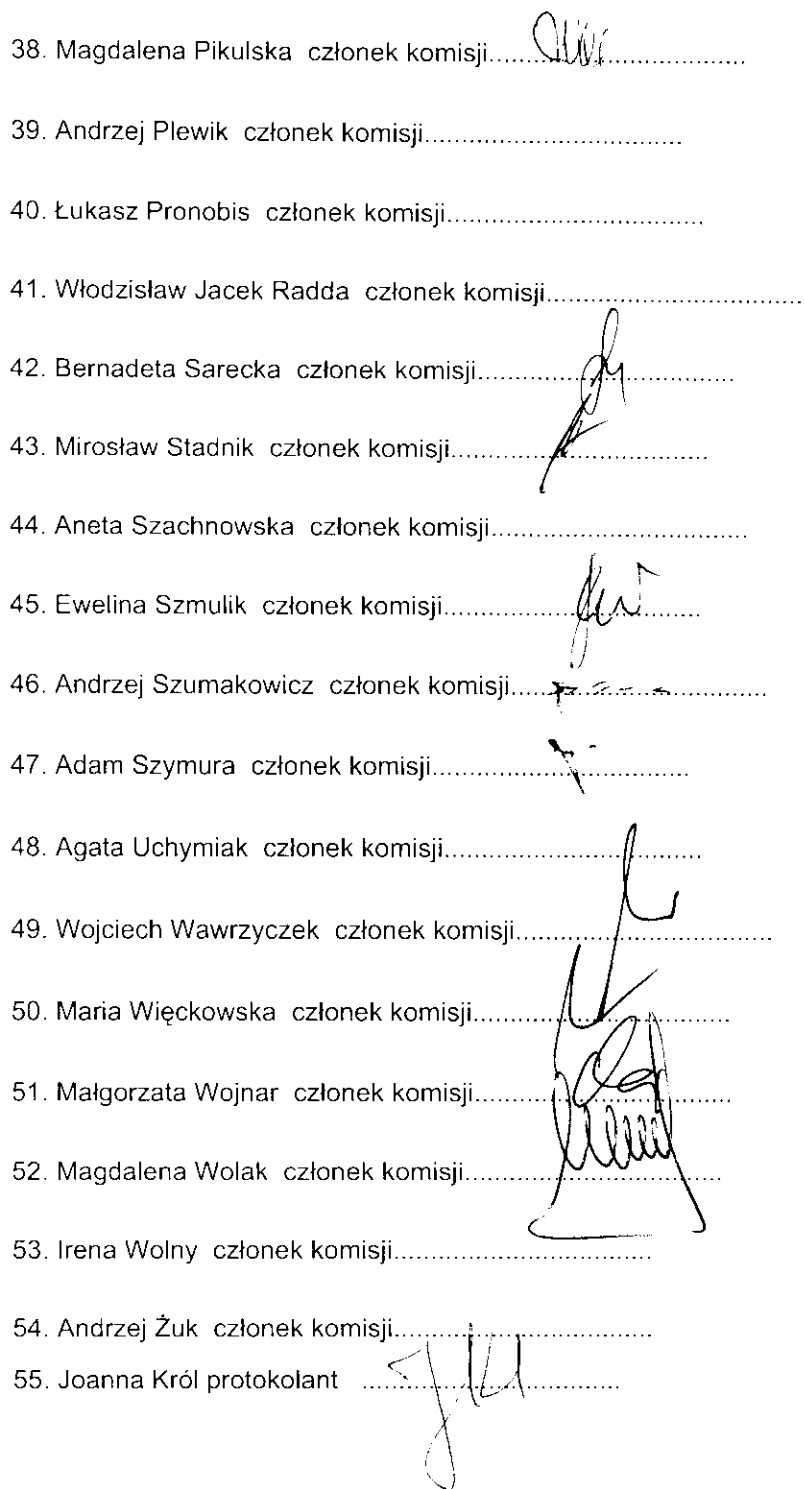 38. Magdalena Pikulska członek komisji..............................
39. Andrzej Plewik członek komisji.................................
40. Łukasz Pronobis członek komisji.................................
41. Włodzisław Jacek Radda członek komisji.................................
42. Bernadeta Sarecka członek komisji.................................
43. Mirosław Stadnik członek komisji.................................
44. Aneta Szachnowska członek komisji.................................
45. Ewelina Szmulik członek komisji.................................
46. Andrzej Szumakowicz członek komisji.................................
47. Adam Szymura członek komisji.................................
48. Agata Uchymiak członek komisji.................................
49. Wojciech Wawrzyczek członek komisji.................................
50. Maria Więckowska członek komisji.................................
51. Małgorzata Wojnar członek komisji.................................
52. Magdalena Wolak członek komisji.................................
53. Irena Wolny członek komisji.................................
54. Andrzej Żuk członek komisji.................................
55. Joanna Król protokolant .................................